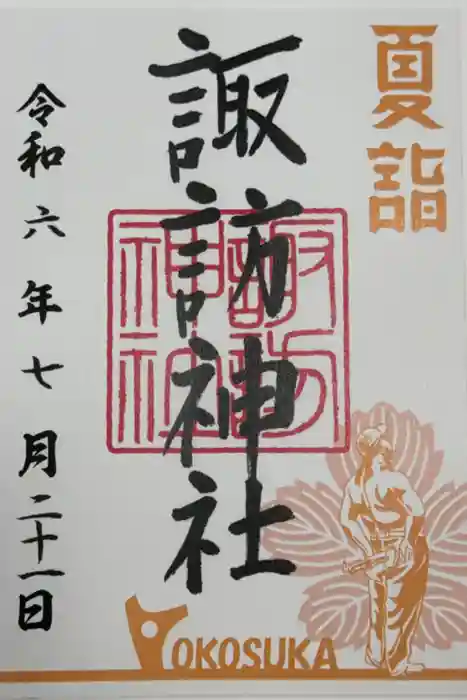 夏詣
諏訪神社
諏訪神社
令和六年七月二十一日
YOKOSUKA